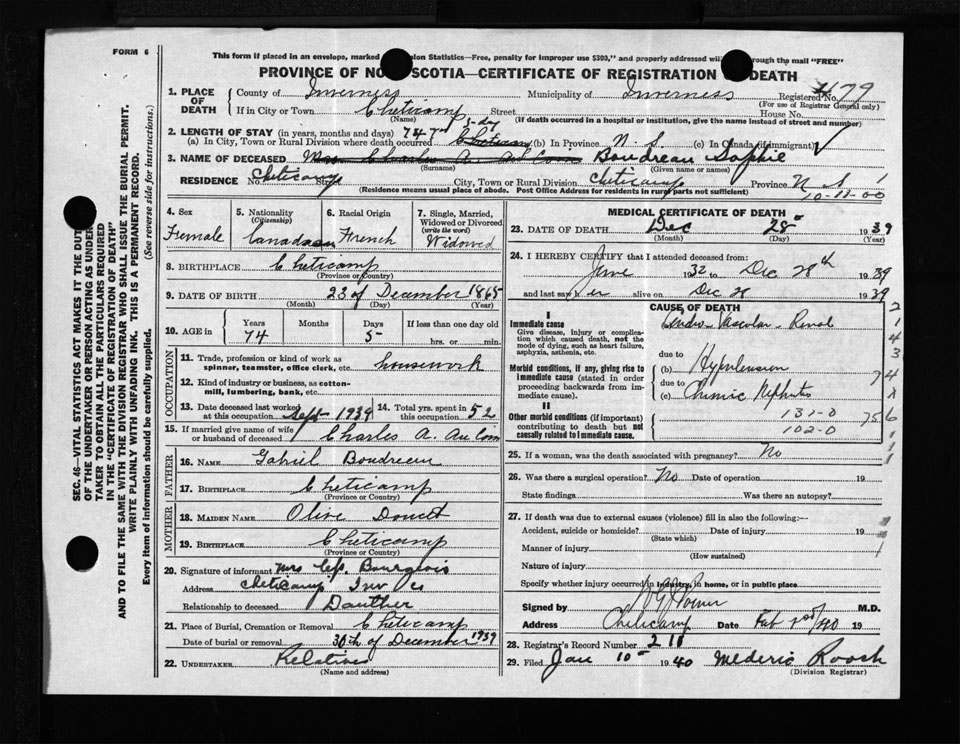 FORM 6
This form if placed in an envelope, marked ion Statistics—Free, penalty for improper use $300," and properly addressed will rough the mail "FREE"
PROVINCE OF NO SCOTIA—CERTIFICATE OF REGISTRATION DEATH
1. PLACE OF DEATH County of Inverness Municipality of Inverness Registered No. 479
(For use of Registrar General only)
If in City or Town Cheticamp Street House No.
(Name) (If death occurred in a hospital or institution, give the name instead of street and number)
2. LENGTH OF STAY (in years, months and days) 74 yrs 5-day
(a) In City, Town or Rural Division where death occurred (b) In Province N. S. (c) In Canada (if immigrant)
3. NAME OF DECEASED Mrs Charles A. AuCoin Boudreau Sophie
(Surname) (Given name or names)
RESIDENCE No. Cheticamp Street City, Town or Rural Division Cheticamp Province N S
(Residence means usual place of abode. Post Office Address for residents in rural parts not sufficient)
10-11-00
4. Sex Female
5. Nationality (Citizenship) Canadian
6. Racial Origin French
7. Single, Married, Widowed or Divorced (write the word) Widowed
8. BIRTHPLACE Cheticamp
(Province or Country)
9. DATE OF BIRTH 23 of December 1865
(Month) (Day) (Year)
10. AGE in Years 74 Months Days 5 If less than one day hrs. or min.
OCCUPATION
11. Trade, profession or kind of work as spinner, teamster, office clerk, etc. housework
12. Kind of industry or business, as cotton-mill, lumbering, bank, etc.
13. Date deceased last worked at this occupation Sept 1939 14. Total yrs. spent in this occupation 52
15. If married give name of wife or husband of deceased Charles A. AuCoin
FATHER
16. NAME Gabriel Boudreau
17. BIRTHPLACE Cheticamp
(Province or Country)
MOTHER
18. MAIDEN NAME Olive Doucet
19. BIRTHPLACE Cheticamp
(Province or Country)
20. Signature of informant Mrs Bourgeois
Address Cheticamp Inv Co
Relationship to deceased Dauther
21. Place of Burial, Cremation or Removal Cheticamp
Date of burial or removal 30th of December 1939
22. UNDERTAKER Relatives
(Name and address)
MEDICAL CERTIFICATE OF DEATH
23. DATE OF DEATH Dec 28 1939
(Month) (Day) (Year)
24. I HEREBY CERTIFY that I attended deceased from:
June 1932 to Dec 28th 1939
and last saw er alive on Dec 28 1939
CAUSE OF DEATH
I
Immediate cause
Give disease, injury or complication which caused death, not the mode of dying, such as heart failure, asphyxia, asthenia, etc.
Cardio-Vascular-Renal
due to
Morbid conditions, if any, giving rise to immediate cause (stated in order proceeding backwards from immediate cause).
(b) Hypertension
due to
(c) Chronic Nephritis
II
Other morbid conditions (if important) contributing to death but not causally related to immediate cause.
131-0
102-0
25. If a woman, was the death associated with pregnancy? No
26. Was there a surgical operation? No Date of operation 19
State findings Was there an autopsy?
27. If death was due to external causes (violence) fill in also the following:—
Accident, suicide or homicide? Date of injury 19
(State which)
Manner of injury
(How sustained)
Nature of injury
Specify whether injury occurred in industry, in home, or in public place
Signed by M.D.
Address Cheticamp Date Feb 1st 1940 19
28. Registrar's Record Number 211
29. Filed Jan 10 1940 Mederic Roach
(Division Registrar)
SEC. 46—VITAL STATISTICS ACT MAKES IT THE DUT
OF THE UNDERTAKER OR PERSON ACTING AS UNDER
TAKER TO OBTAIN ALL THE PARTICULARS REQUIRED
IN THE "CERTIFICATE OF REGISTRATION OF DEATH"
AND TO FILE THE SAME WITH THE DIVISION REGISTRAR WHO SHALL ISSUE THE BURIAL PERMIT.
WRITE PLAINLY WITH UNFADING INK. THIS IS A PERMANENT RECORD.
Every item of information should be carefully supplied. (See reverse side for instructions.)